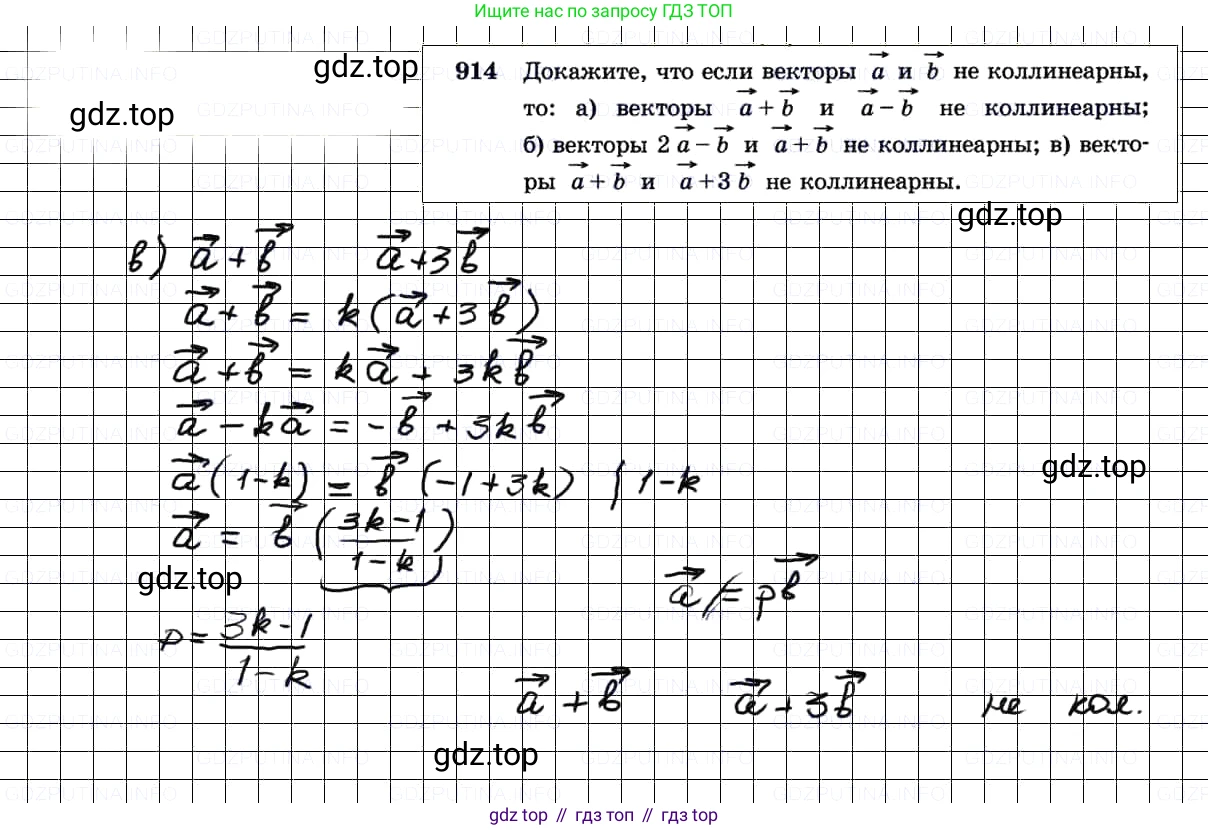 Ищите нас по запросу ГДЗ ТОП
gdz.top
gdz.top
914 Докажите, что если векторы a⃗ и b⃗ не коллинеарны,
то: а) векторы a⃗ + b⃗ и a⃗ − b⃗ не коллинеарны;
б) векторы 2a⃗ − b⃗ и a⃗ + b⃗ не коллинеарны; в) векто-
ры a⃗ + b⃗ и a⃗ + 3b⃗ не коллинеарны.
gdz.top
в) a⃗ + b⃗ a⃗ + 3b⃗
a⃗ + b⃗ = k(a⃗ + 3b⃗)
a⃗ + b⃗ = ka⃗ + 3kb⃗
a⃗ − ka⃗ = −b⃗ + 3kb⃗
a⃗(1−k) = b⃗(−1+3k) | 1−k
gdz.top
a⃗ = b⃗ ((3k−1)/(1−k))
gdz.top
a⃗ ≠ pb⃗
p = (3k−1)/(1−k)
a⃗ + b⃗ a⃗ + 3b⃗ не кол.
gdz.top
gdz top // гдз топ // gdz top